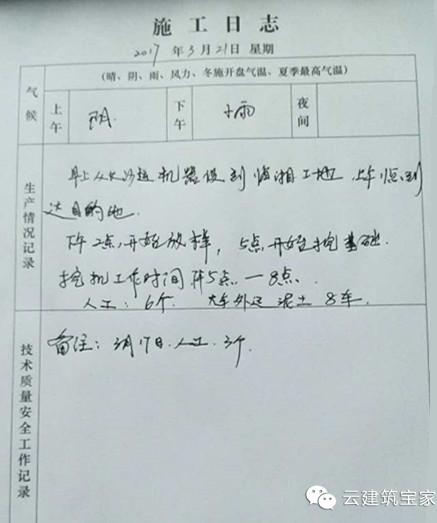 施工日志
2017年3月21日 星期
(晴、阴、雨、风力、冬施开盘气温、夏季最高气温)
气候 上午 阴 下午 小雨 夜间
生产情况记录
早上从长沙拉机器设到临湘工地,上午 到
达目的地.
下午2点,开始放样,5点开始挖基础.
挖机工作时间 下午5点—8点.
人工:6个. 外运泥土8车.
技术质量安全工作记录
备注:3月17日.人工.3个.
云建筑宝家